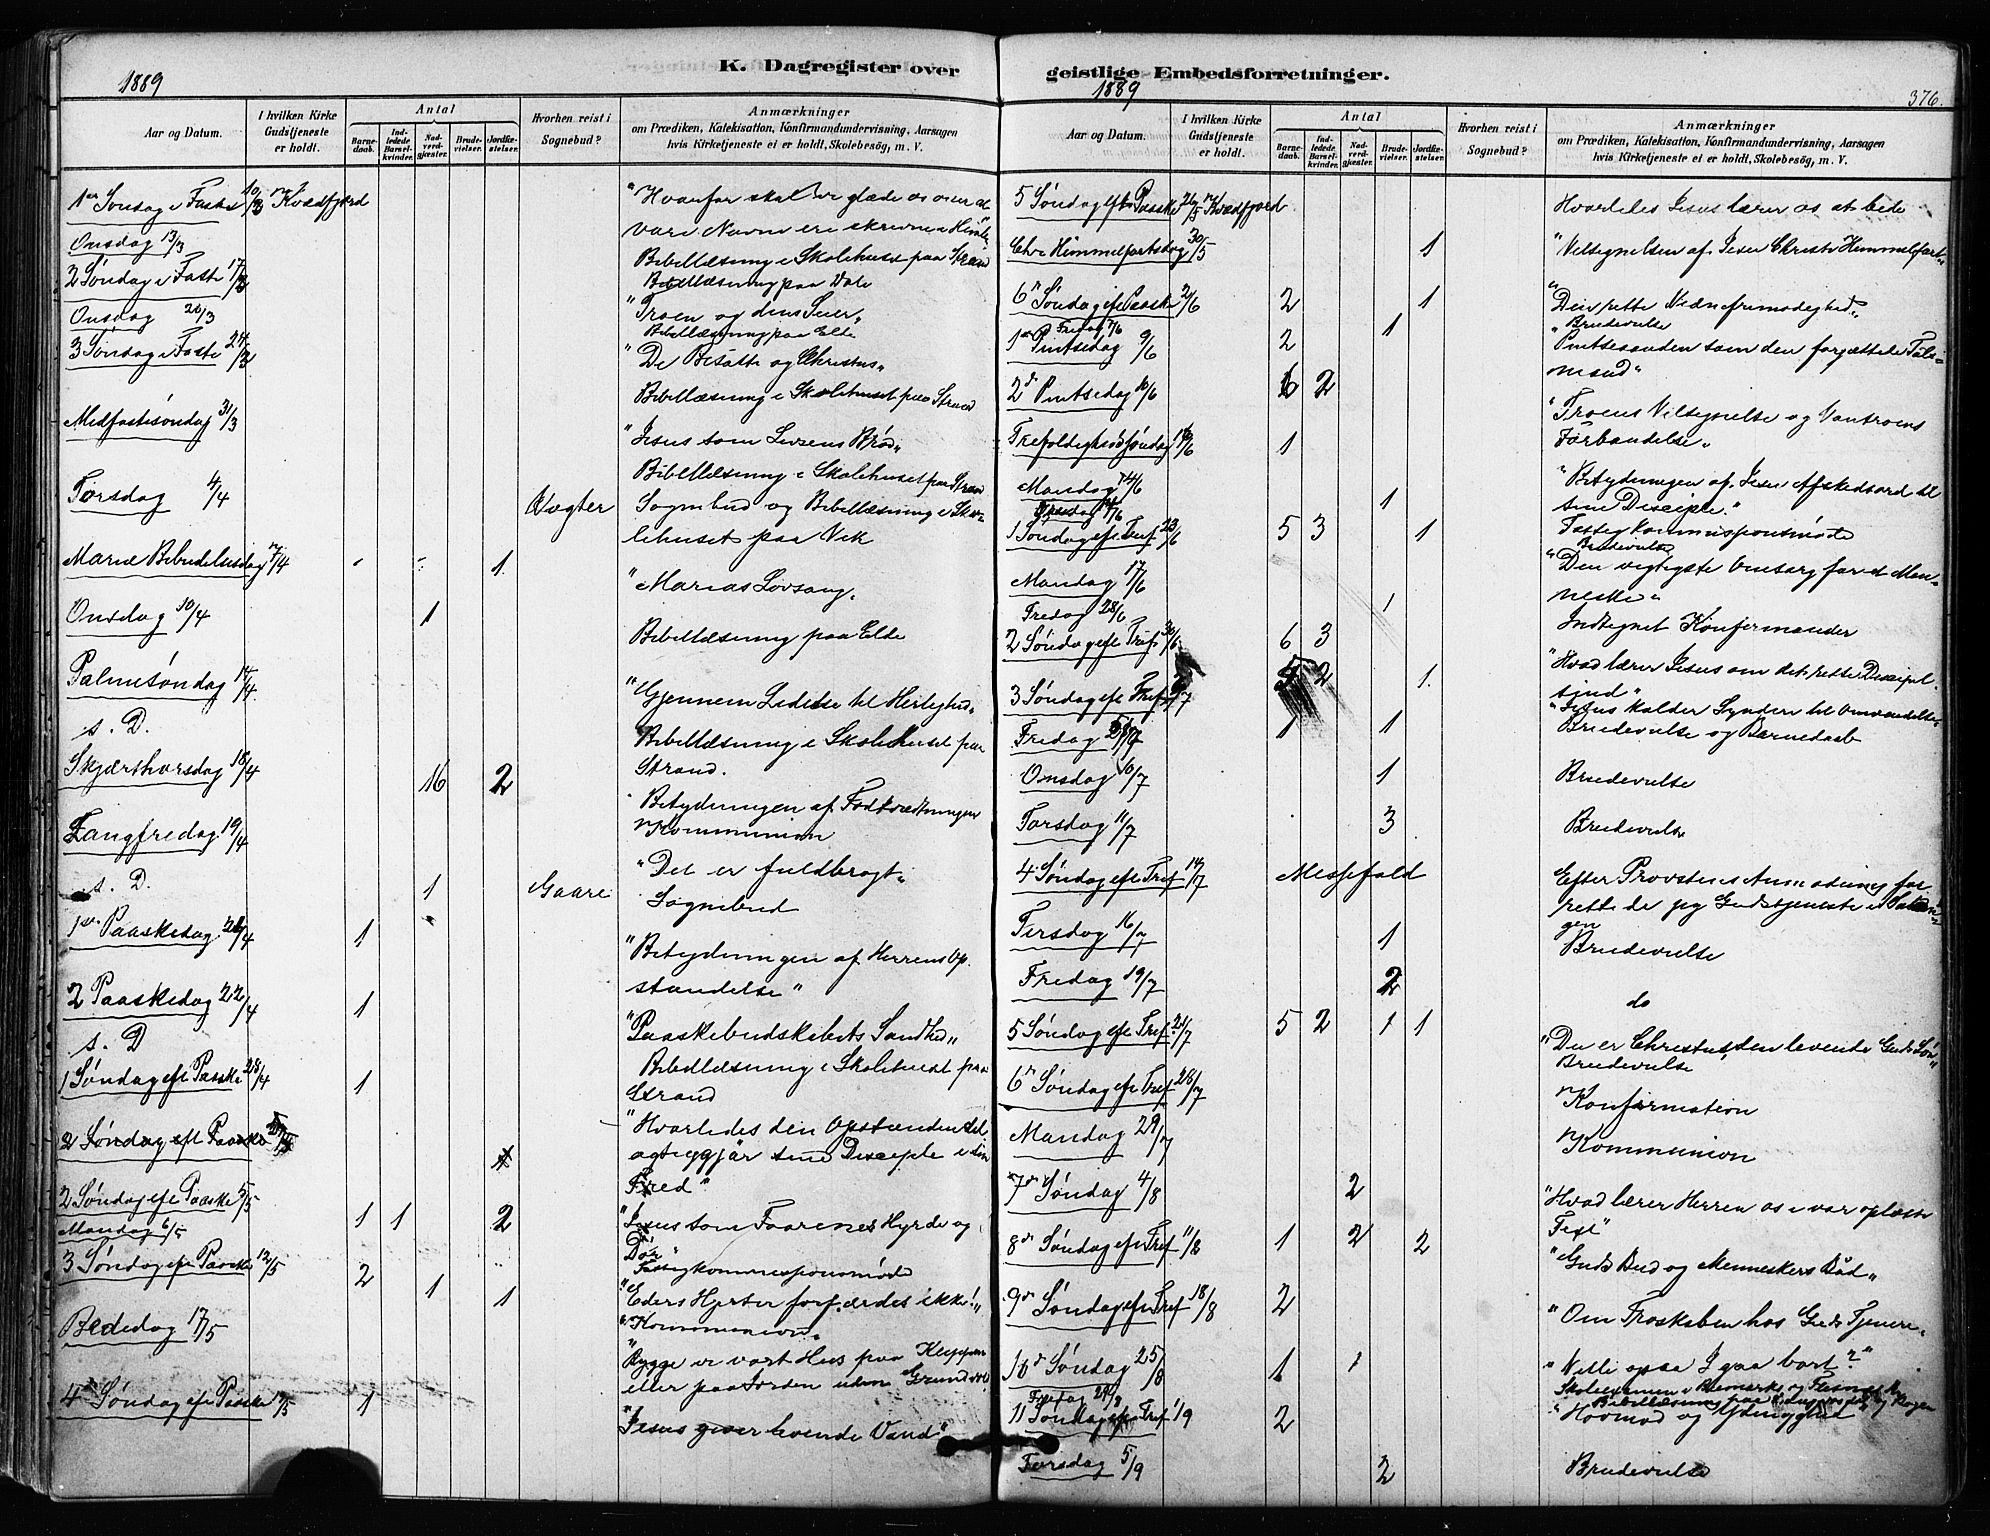 K. Dagregister over
1889
Aar og Datum.
I hvilken Kirke Gudstjeneste er holdt.
Antal
Barnedaab.
Indledede Barselkvinder.
Nadverdgjæster.
Brudevielser.
Jordfæstelser.
Hvorhen reist i Sognebud?
Anmærkninger
om Prædiken, Katekisation, Konfirmandundervisning, Aarsagen
hvis Kirketjeneste ei er holdt, Skolebesøg, m. V.
1ste Søndag i Faste 10/3 Kvædfjord "Hvorfor skal vi glæde os over at
vore Navne ere skrevne i Himle"
Onsdag 13/3 Bibellæsning i Skolehuset paa Strand
2 Søndag i Faste 17/3 Bibellæsning paa Vole
"Troen og dens Seier"
Onsdag 20/3 Bibellæsning paa Elde
3 Søndag i Faste 24/3 "De Besatte og Christus"
Bibellæsning i Skolehuset paa Strand
Medfastesøndag 31/3 "Jesus som Livsens Brød"
Bibellæsning i Skolehuset paa Strand
Torsdag 4/4 Sognebud og Bibellæsning i Sko-
lehuset paa Vik
Mariæ Bebudelsesdag 7/4 1 "Marias Lovsang"
Onsdag 10/4 1 Bibellæsning paa Elde
Palmesøndag 14/4 "Gjennem Lidelse til Herlighed"
s. D. Bibellæsning i Skolehuset paa
Strand.
Skjærthorsdag 18/4 16 2 Betydningen af Fodtvætningen
Kommunion
Langfredag 19/4 "Det er fuldbragt"
s. D. 1 Gaare Sognebud
1ste Paaskedag 21/4 1 "Betydningen af Herrens Op-
standelse"
2 Paaskedag 22/4 1 "Paaskebudskabets Sandhed"
s. D Bibellæsning i Skolehuset paa
Strand
1 Søndag eft Paaske 28/4 1 "Hvorledes den Opstandne
sine Disciple i sin
Fred"
2 Søndag eft Paaske
2 Søndag eft Paaske 5/5 1 1 2 "Jesus som Faarenes Hyrde og
Dør"
Mandag 6/5 Fattigkommissionsmøde
3 Søndag eft Paaske 12/5 2 1 1 "Eders Hjerter forfærdes ikke!"
Kommunion
Bededag 17/5 "Bygge vi vort Hus paa Klippen
eller paa Jorden uden Grundvol"
4 Søndag eft Paaske 19/5 1 "Jesus giver levende Vand"
geistlige Embedsforretninger.
1889
376.
Aar og Datum.
I hvilken Kirke Gudstjeneste er holdt.
Antal
Barnedaab.
Indledede Barselkvinder.
Nadverdgjæster.
Brudevielser.
Jordfæstelser.
Hvorhen reist i Sognebud?
Anmærkninger
om Prædiken, Katekisation, Konfirmandundervisning, Aarsagen
hvis Kirketjeneste ei er holdt, Skolebesøg, m. V.
5 Søndag eft Paaske 26/5 Kvædfjord Hvorledes Jesus lærer os at bede
Chr. Himmelfartsdag 30/5 1 "Velsignelsen af Jesu Christi Himmelfart"
6 Søndag eft Paaske 2/6 2 1 "Den rette Vidnefrimodighed"
Fredag 7/6 1 Brudevielse
1ste Pintsedag 9/6 2 "Pintseaanden som den forjættede Tals-
mand"
2den Pintsedag 10/6 6 2 "Troens Velsignelse og Vantroens
Forbandelse"
Trefoldighedssøndag 16/6 1 "Betydningen af Jesu Afskedsord til
sine Disciple."
Mandag Fattigkommissionsmøde
1 Brudevielse
1 Søndag eft Tref 23/6 5 3 1 "Den vigtigste Omsorg for et Men-
neske"
Mandag 17/6 Indtegnet Konfirmander
Fredag 28/6 1
2 Søndag eft Tref. 30/6 6 3 "Hvad lærer Jesus om det rette Discipel-
sind"
3 Søndag eft Tref. 7/7 5 2 1 "Jesus kalder Syndere til Omvendelse"
Fredag 1 1 Brudevielse og Barnedaab
Onsdag 10/7 1 Brudevielse
Torsdag 11/7 3 Brudevielse
4 Søndag eft Tref 14/7 Messefald Efter Provstens Anmodning for-
rettede jeg Gudstjeneste i
Tirsdag 16/7 1 Brudevielse
Fredag 19/7 2 do
5 Søndag eft Tref. 21/7 5 2 1 1 "Du er Christus, den levende Guds Søn"
Brudevielse
6 Søndag eft Tref 28/7 Konfirmation
Mandag 29/7 Kommunion
7de Søndag 4/8 2 "Hvad lærer Herren os i vor oplæste
Text"
8de Søndag eft Tref 11/8 1 2 2 "Guds Bud og Menneskers Bud"
9de Søndag eft Tref 18/8 2 "Om Troskaben hos Guds Tjenere"
10de Søndag 25/8 1 1 "Ville ogsaa I gaa bort?"
Fredag
11 Søndag eft Tref 1/9 2 "Hovmod og Ydmyghed"
Torsdag 5/9 2 Brudevielse